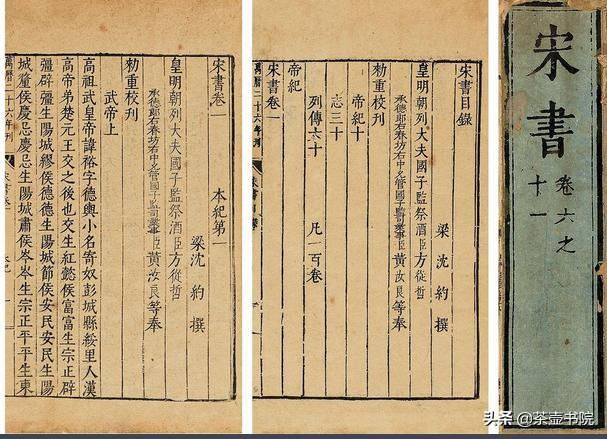 宋書
卷六之
十一
宋書目錄
梁沈約撰
皇明朝列大夫國子監祭酒臣方從哲
承德郎右春坊右中允管國子監司業事臣黃汝良等奉
勑重校刊
帝紀十
志三十
列傳六十 凡一百卷
帝紀
宋書卷一
萬曆二十六年刊
宋書卷一 本紀第一
梁沈約撰
皇明朝列大夫國子監祭酒臣方從哲
承德郎右春坊右中允管國子監司業事臣黃汝良等奉
勑重校刊
武帝上
高祖武皇帝諱裕字德輿小名寄奴彭城縣綏里人漢
高帝弟楚元王交之後也交生紅懿侯富富生宗正辟
彊辟彊生陽城繆侯德德生陽城節侯安民安民生陽
城釐侯慶忌慶忌生陽城肅侯岑岑生宗正平平生東
萬曆二十六年刊
宋書卷一
头条 @茶壶书院